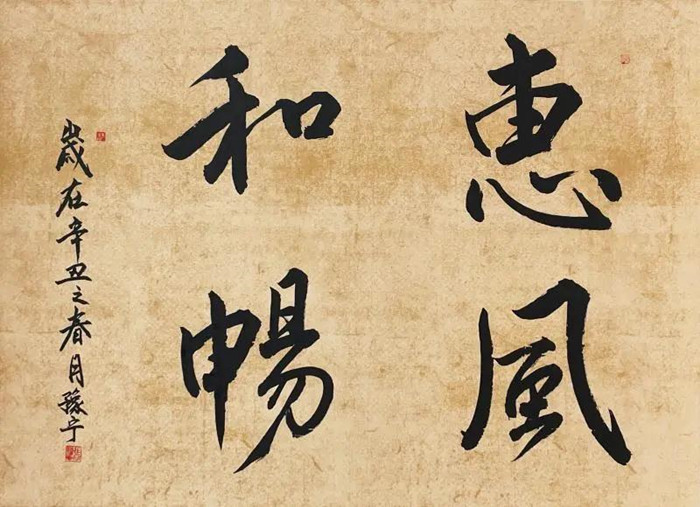 惠風
和暢
歲在辛丑之春月豫宁